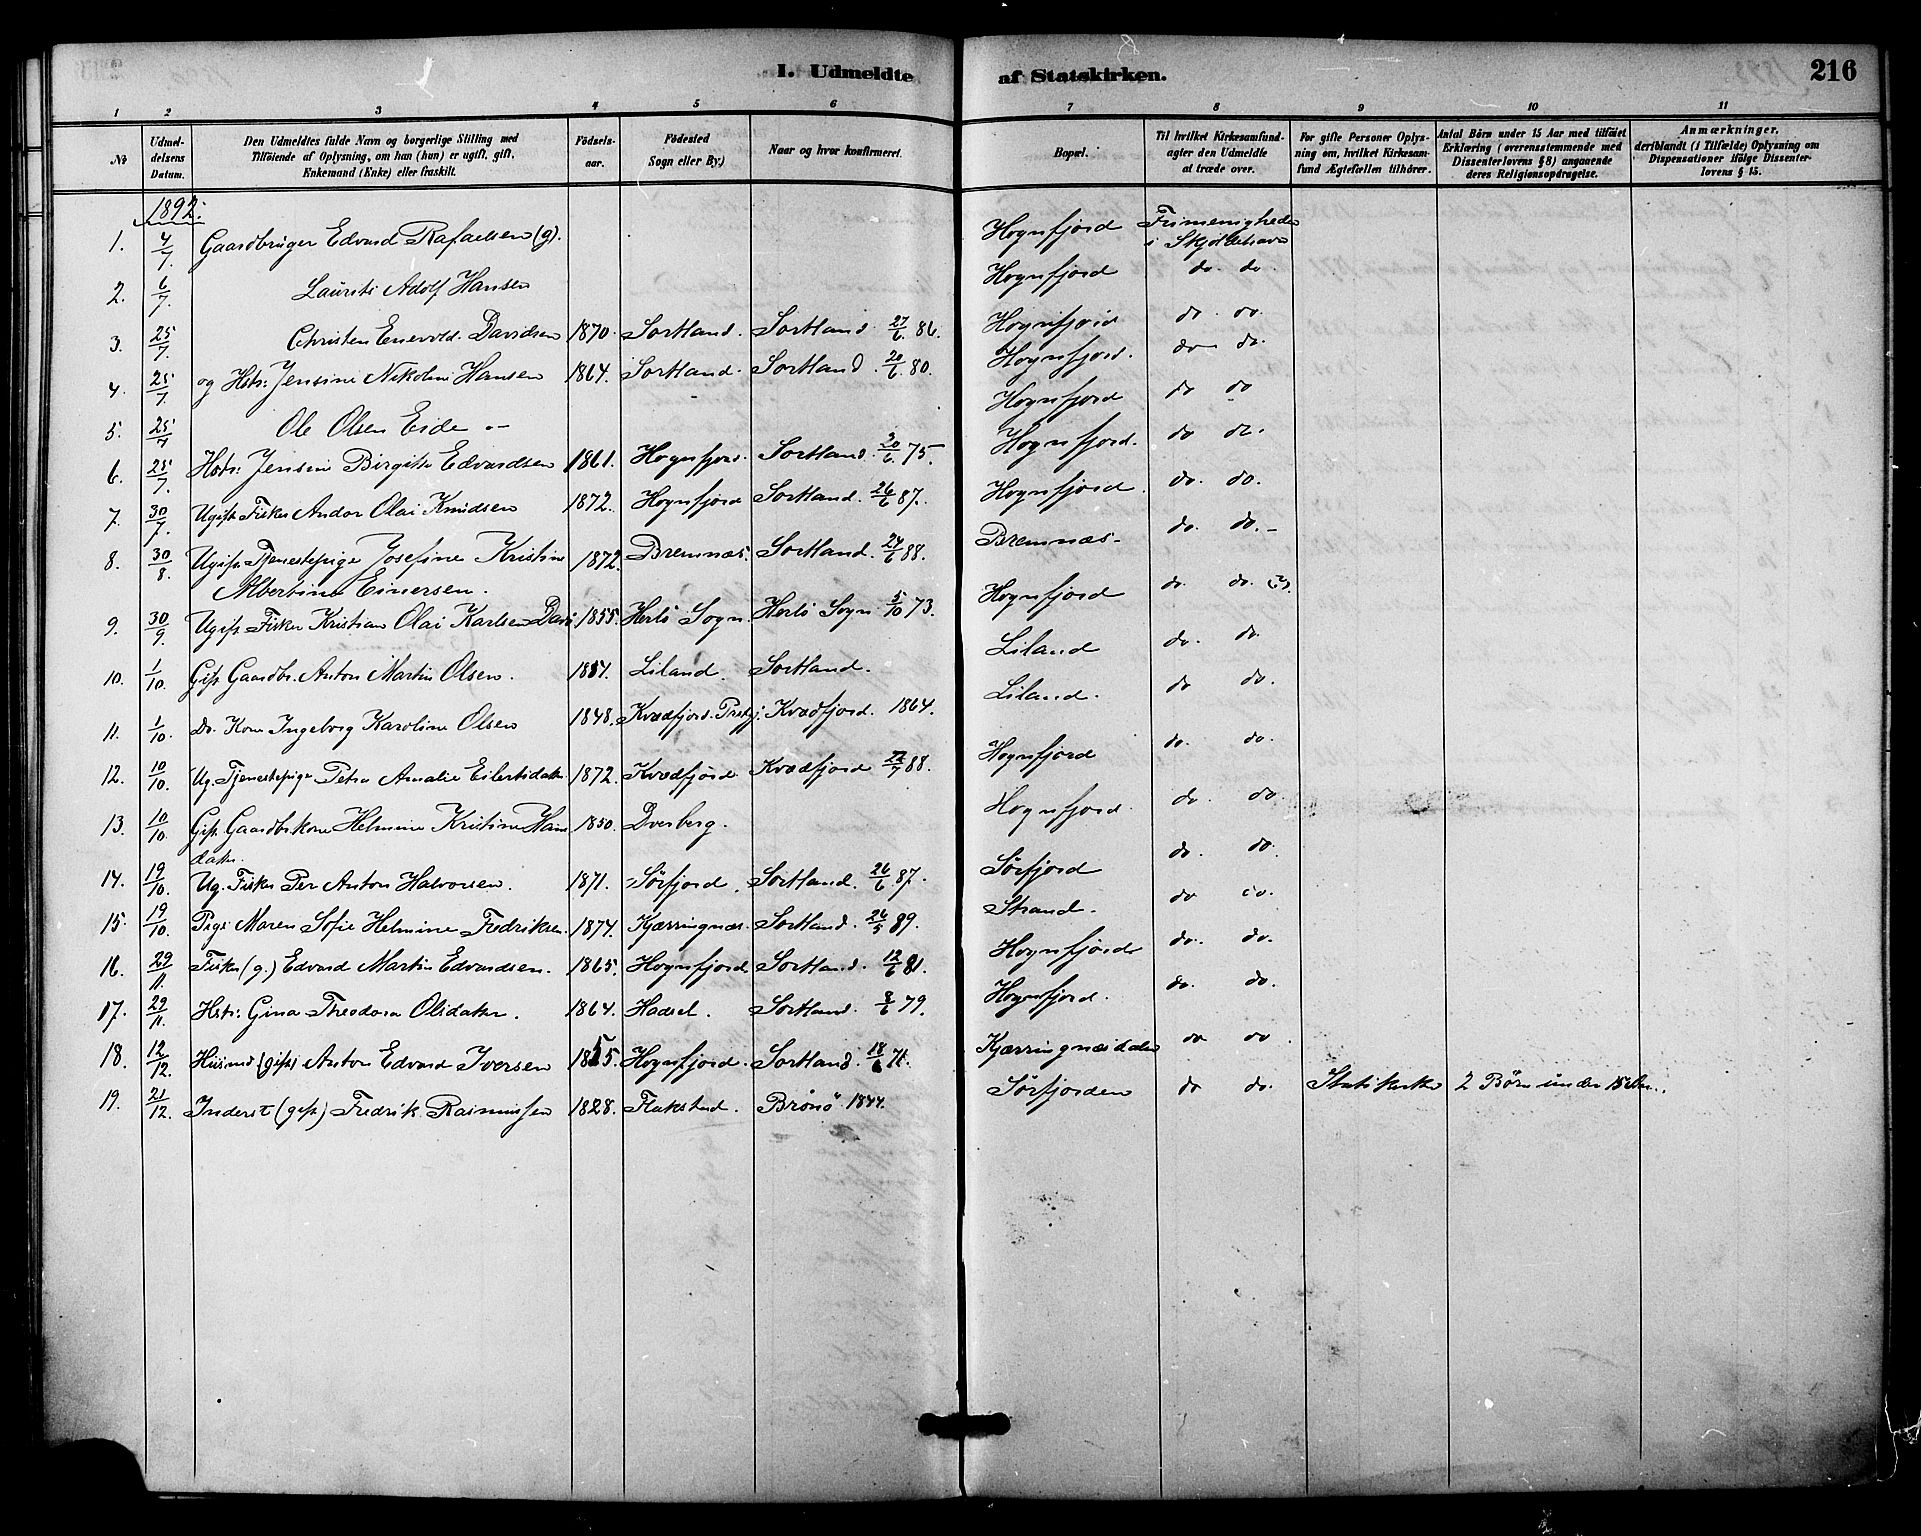 I. Udmeldte af Statskirken. 216
1 2 3 4 5 6 7 8 9 10 11
No
Udmel-
delsens
Datum.
Den Udmeldtes fulde Navn og borgerlige Stilling med
Tilföiende af Oplysning, om han (hun) er ugift, gift,
Enkemand (Enke) eller fraskilt.
Födsels-
aar.
Födested
Sogn eller By.)
Naar og hvor konfirmeret.
Bopæl.
Til hvilket Kirkesamfund-
agter den Udmeldte
at træde over.
For gifte Personer Oplys-
ning om, hvilket Kirkesam-
fund Ægtefællen tilhörer.
Antal Börn under 15 Aar med tilföiet
Erklæring (overensstemmende med
Dissenterlovens § 8) angaaende
deres Religionsopdragelse.
Anmærkninger.
deriblandt (i Tilfælde) Oplysning om
Dispensationer ifölge Dissenter-
lovens § 15.
1892.
1. 4/7. Gaardbruger Edvard Rafaelsen (g). Hognfjord Frimenigheden
i Skjoldehavn
2. 6/7. Laurits Adolf Hansen Hognfjord do. do.
3. 25/7. Christen Enevold Davidsen 1870. Sortland. Sortland 27/6 86. Hognfjord do. do.
4. 25/7. og Hstr: Jensine Nikoline Hansen 1864. Sortland. Sortland 20/6 80. Hognfjord. do do.
5. 25/7 Ole Olsen Eide Hognfjord do do
6. 25/7. Hstr: Jensine Birgitte Edvardsen 1861. Hognfjord. Sortland. 20/6 75. Hognfjord. do do.
7. 30/7. Ugift Fisker Andor Olai Knudsen 1872. Hognfjord Sortland. 26/6 87. Hognfjord. do. do.
8. 30/8. Ugift Tjenestepige Josefine Kristine 1872. Bremnæs. Sortland. 24/6 88. Bremnæs. do. do.
Albertine Einersen.
9. 30/9. Ugift Fisker Kristian Olai Karlsen 1855. Herlö Sogn. Herlö Sogn 5/10 73. Hognfjord do. do. (?).
10. 1/10. Gift Gaardbr. Anton Martin Olsen. 1854. Liland. Sortland. Liland do. do.
11. 1/10. Do. Kone Ingeborg Karoline Olsen 1848. Kvædfjord Prstgj. Kvædfjord. 1864. Liland. do do.
12. 10/10. Ug. Tjenestepige Petra Amalie Eilertsdatter 1872. Kvædfjord Kvædfjord 22/7 88. Hognfjord do. do.
13. 10/10. Gift Gaardbrkone Helmine Kristine Hans 1850. Dverberg. Hognfjord. do. do
datter.
14. 19/10. Ug. Fisker Per Anton Halvorsen. 1871. Sörfjord. Sortland. 26/6 87. Sörfjord do. do.
15. 19/10. Pige Maren Sofie Helmine Fredriksen. 1874. Kjærringnæs. Sortland. 26/5 89. Strand. do do.
16. 29/11. Fisker (g.) Edvard Martin Edvardsen. 1865. Hognfjord Sortland. 12/6 81. Hognfjord do. do.
17. 29/11. Hstr: Gina Theodora Olsdatter. 1864. Hadsel. Sortland. 8/6 79. Hognfjord. do. do.
18. 12/12. Husmd (gift) Anton Edvard Iversen 1855. Hognfjord. Sortland. 18/6 71. Kjærringnæsdalen do do
19. 21/12. Inderst (gift) Fredrik Rasmussen 1828. Flakstad. Brönö 1844. Sörfjorden do do. Statskirken 2 Börn under 15 Aar.